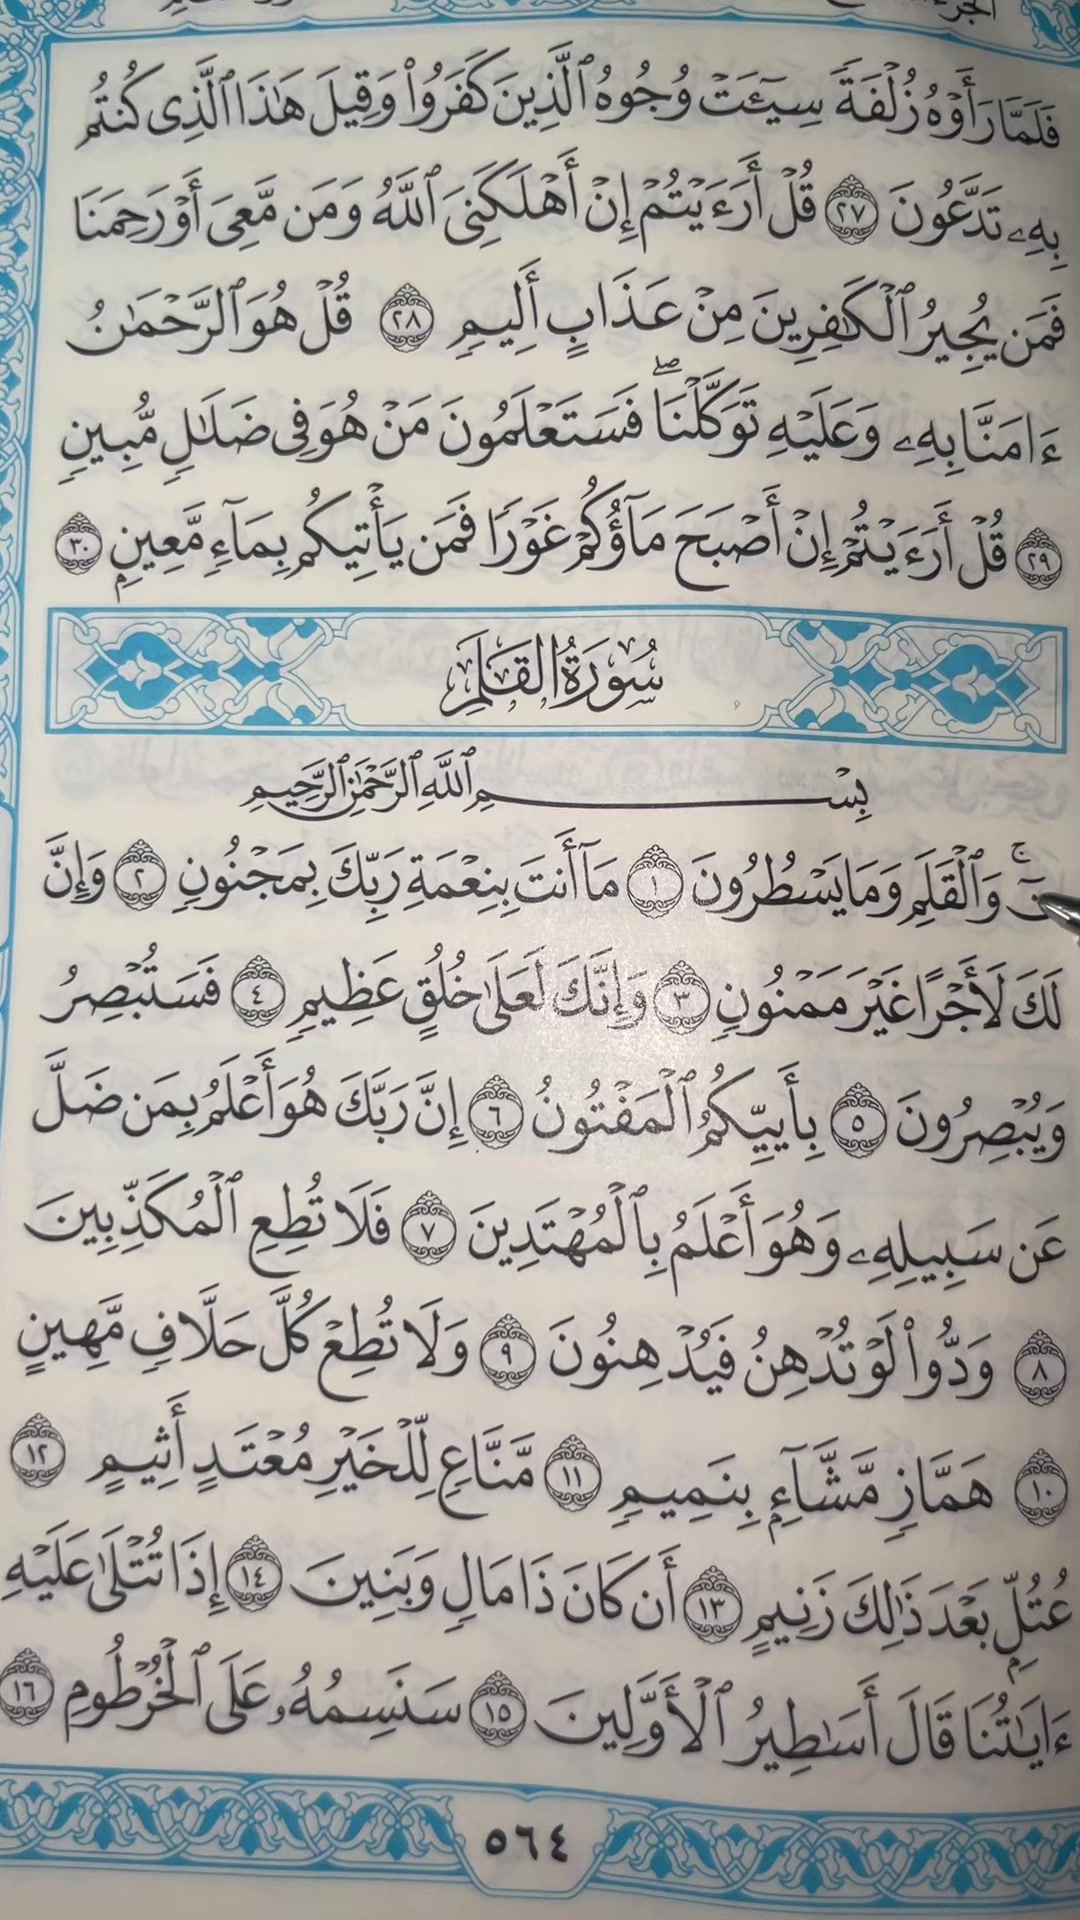 فَلَمَّا رَأَوْهُ زُلْفَةً سِيٓـَٔتْ وُجُوهُ ٱلَّذِينَ كَفَرُوا۟ وَقِيلَ هَـٰذَا ٱلَّذِى كُنتُم
بِهِۦ تَدَّعُونَ ٢٧ قُلْ أَرَءَيْتُمْ إِنْ أَهْلَكَنِىَ ٱللَّهُ وَمَن مَّعِىَ أَوْ رَحِمَنَا
فَمَن يُجِيرُ ٱلْكَـٰفِرِينَ مِنْ عَذَابٍ أَلِيمٍ ٢٨ قُلْ هُوَ ٱلرَّحْمَـٰنُ
ءَامَنَّا بِهِۦ وَعَلَيْهِ تَوَكَّلْنَا ۖ فَسَتَعْلَمُونَ مَنْ هُوَ فِى ضَلَـٰلٍ مُّبِينٍ
٢٩ قُلْ أَرَءَيْتُمْ إِنْ أَصْبَحَ مَآؤُكُمْ غَوْرًا فَمَن يَأْتِيكُم بِمَآءٍ مَّعِينٍۭ ٣٠
سُورَةُ القَلَمِ
بِسْمِ ٱللَّهِ ٱلرَّحْمَـٰنِ ٱلرَّحِيمِ
نٓ ۚ وَٱلْقَلَمِ وَمَا يَسْطُرُونَ ١ مَآ أَنتَ بِنِعْمَةِ رَبِّكَ بِمَجْنُونٍ ٢ وَإِنَّ
لَكَ لَأَجْرًا غَيْرَ مَمْنُونٍ ٣ وَإِنَّكَ لَعَلَىٰ خُلُقٍ عَظِيمٍ ٤ فَسَتُبْصِرُ
وَيُبْصِرُونَ ٥ بِأَييِّكُمُ ٱلْمَفْتُونُ ٦ إِنَّ رَبَّكَ هُوَ أَعْلَمُ بِمَن ضَلَّ
عَن سَبِيلِهِۦ وَهُوَ أَعْلَمُ بِٱلْمُهْتَدِينَ ٧ فَلَا تُطِعِ ٱلْمُكَذِّبِينَ
٨ وَدُّوا۟ لَوْ تُدْهِنُ فَيُدْهِنُونَ ٩ وَلَا تُطِعْ كُلَّ حَلَّافٍ مَّهِينٍ
١٠ هَمَّازٍ مَّشَّآءٍۭ بِنَمِيمٍ ١١ مَّنَّاعٍ لِّلْخَيْرِ مُعْتَدٍ أَثِيمٍ ١٢
عُتُلٍّۭ بَعْدَ ذَٰلِكَ زَنِيمٍ ١٣ أَن كَانَ ذَا مَالٍ وَبَنِينَ ١٤ إِذَا تُتْلَىٰ عَلَيْهِ
ءَايَـٰتُنَا قَالَ أَسَـٰطِيرُ ٱلْأَوَّلِينَ ١٥ سَنَسِمُهُۥ عَلَى ٱلْخُرْطُومِ ١٦
٥٦٤